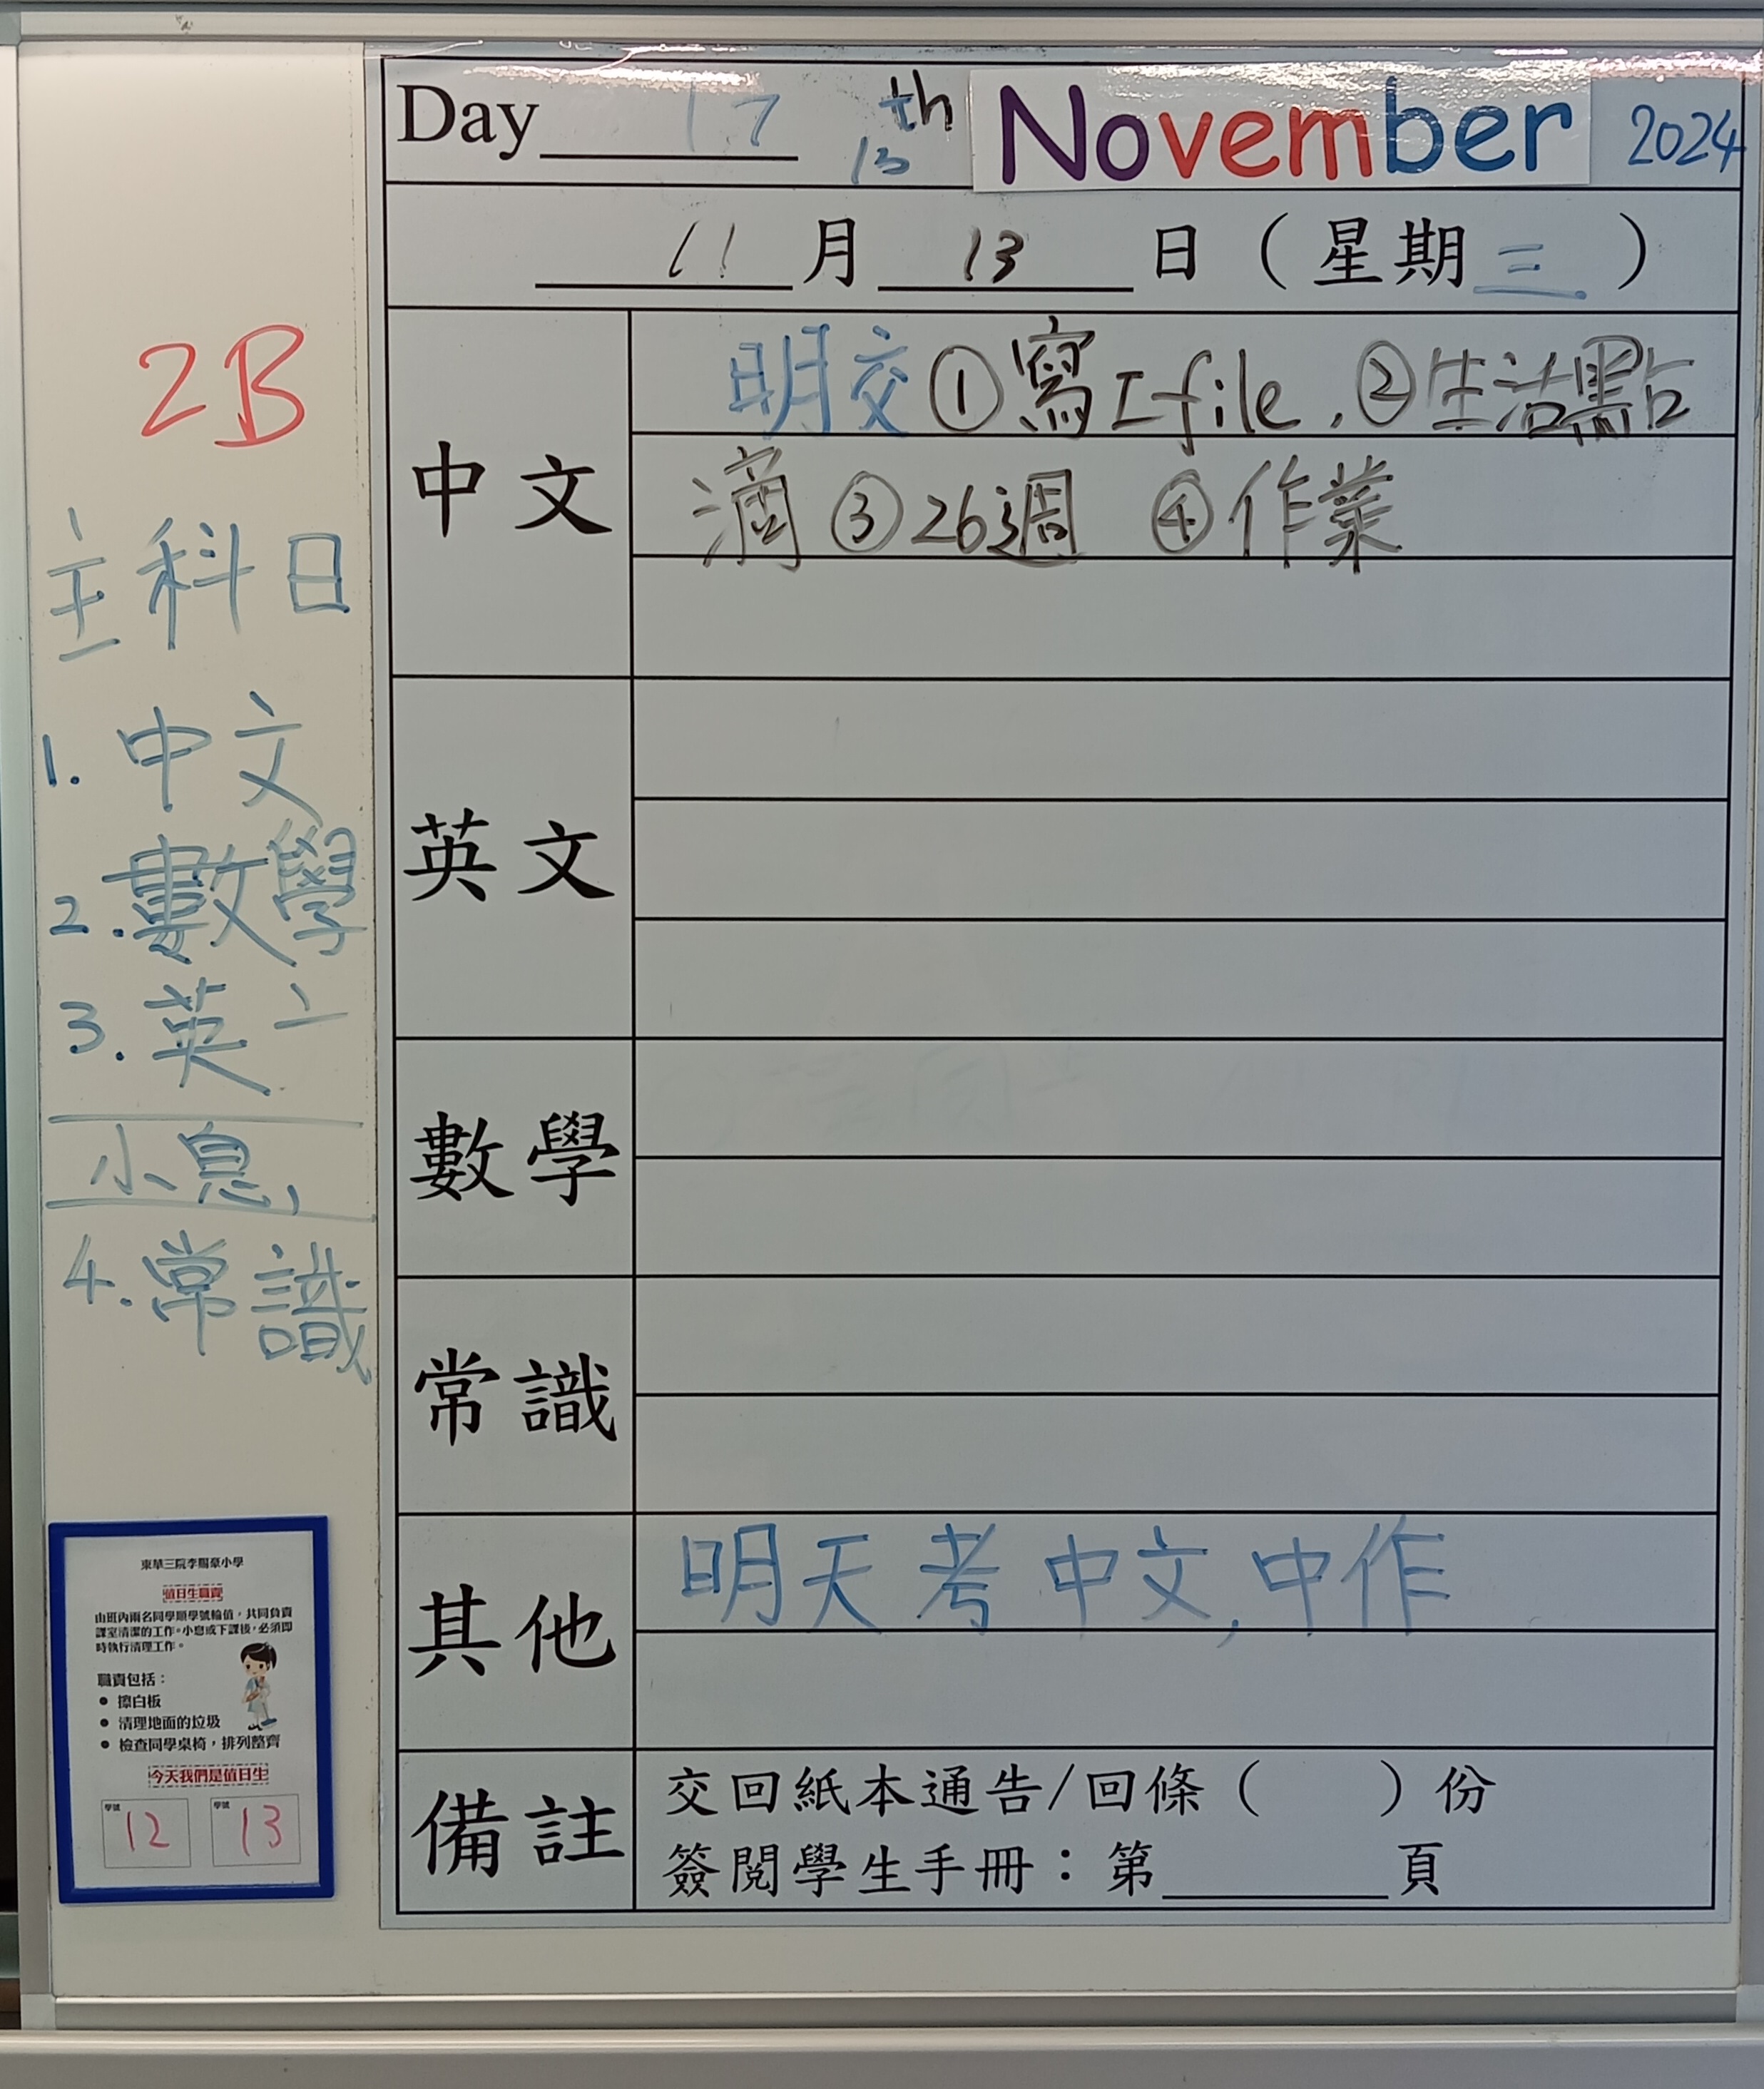 Day 17 13th November 2024
11月13日（星期三）
2B
主科日
1. 中文
2. 數學
3. 英
小息
4. 常識
中文
明交①寫I file. ②生活點
滴 ③26週 ④作業
英文
數學
常識
其他
明天考中文,中作
備註
交回紙本通告/回條（ ）份
簽閱學生手冊：第 頁
東華三院李賜豪小學
值日生職責
由班內兩名同學順學號輪值，共同負責
課室清潔的工作。小息或下課後，必須即
時執行清理工作。
職責包括：
• 擦白板
• 清理地面的垃圾
• 檢查同學桌椅，排列整齊
今天我們是值日生
學號 12 學號 13